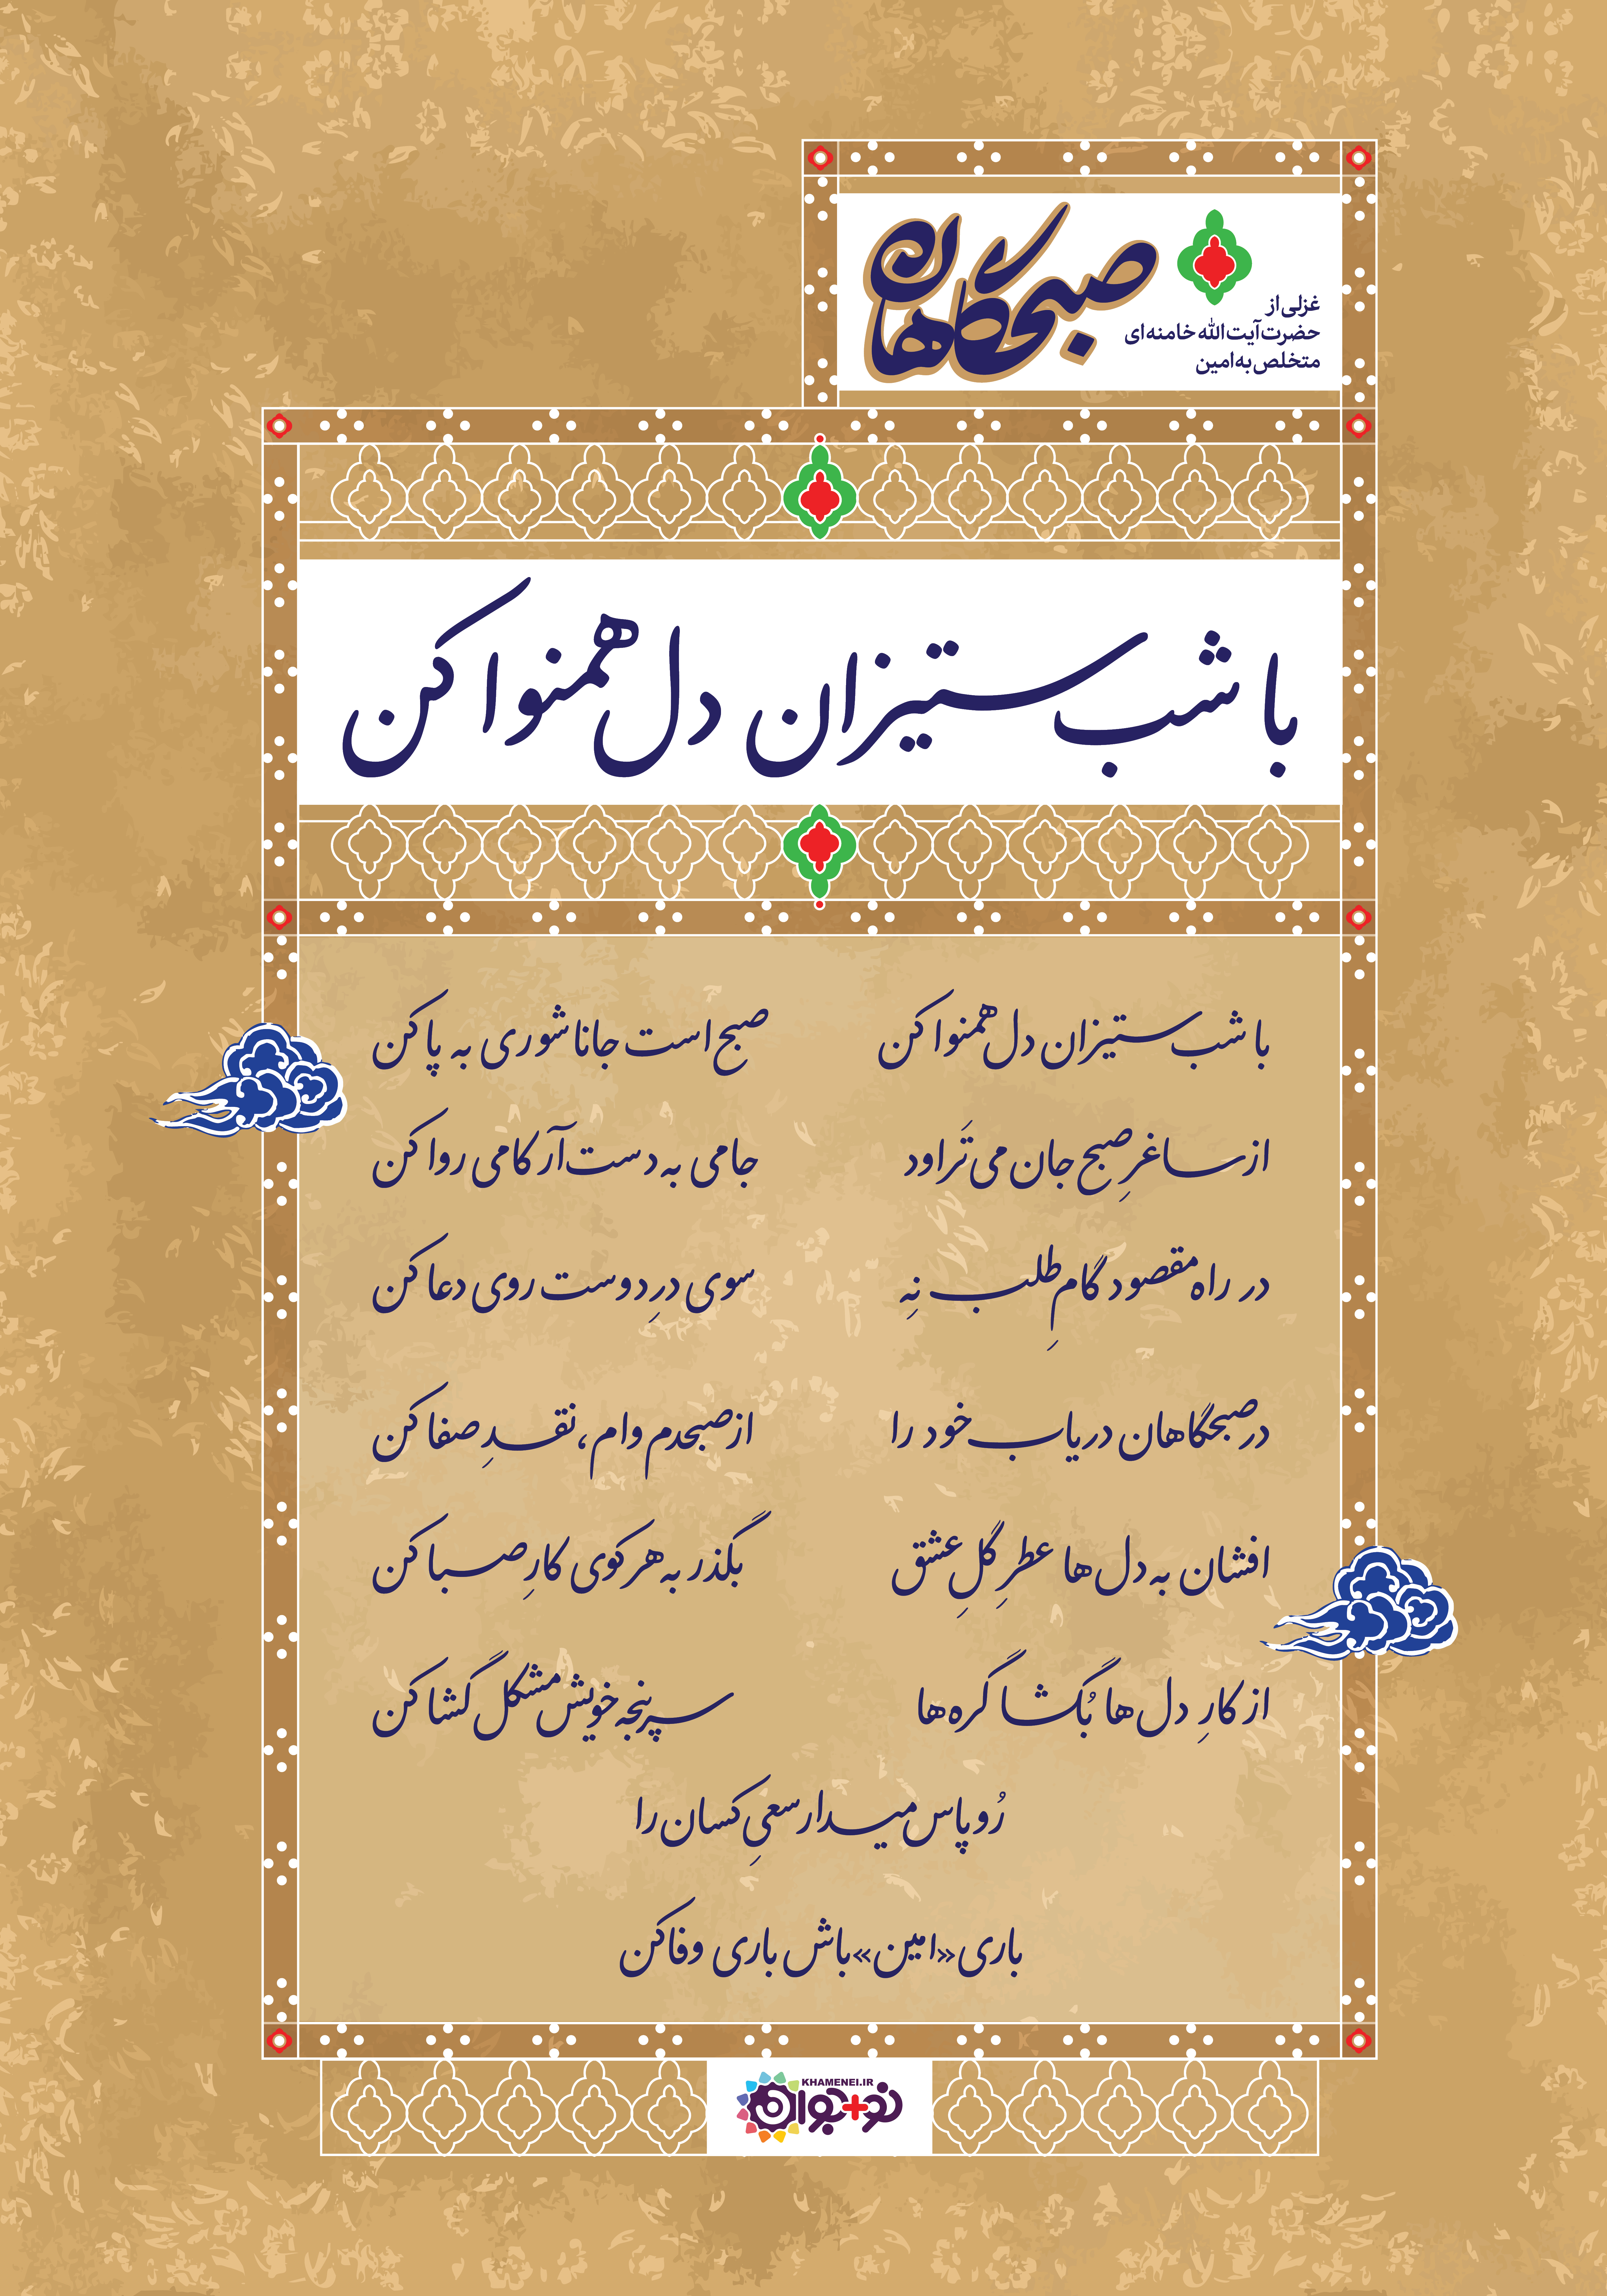 صبحگاهان
غزلی از
حضرت آیت الله خامنه ای
متخلص به امین
با شب ستیزان دل همنوا کن
با شب ستیزان دل همنوا کن صبح است جانا شوری به پا کن
از ساغرِ صبح جان می تَراود جامی به دست آر کامی روا کن
در راه مقصود گامِ طلب نِه سوی درِ دوست روی دعا کن
در صبحگاهان دریاب خود را از صبحدم وام، نقدِ صفا کن
افشان به دل ها عطرِ گلِ عشق بگذر به هر کوی کارِ صبا کن
از کارِ دل ها بُگشا گره ها سرپنجه خویش مشکل گشا کن
رُو پاس میدار سعیِ کسان را
باری «امین» باش باری وفا کن
KHAMENEI.IR
نو+جوان